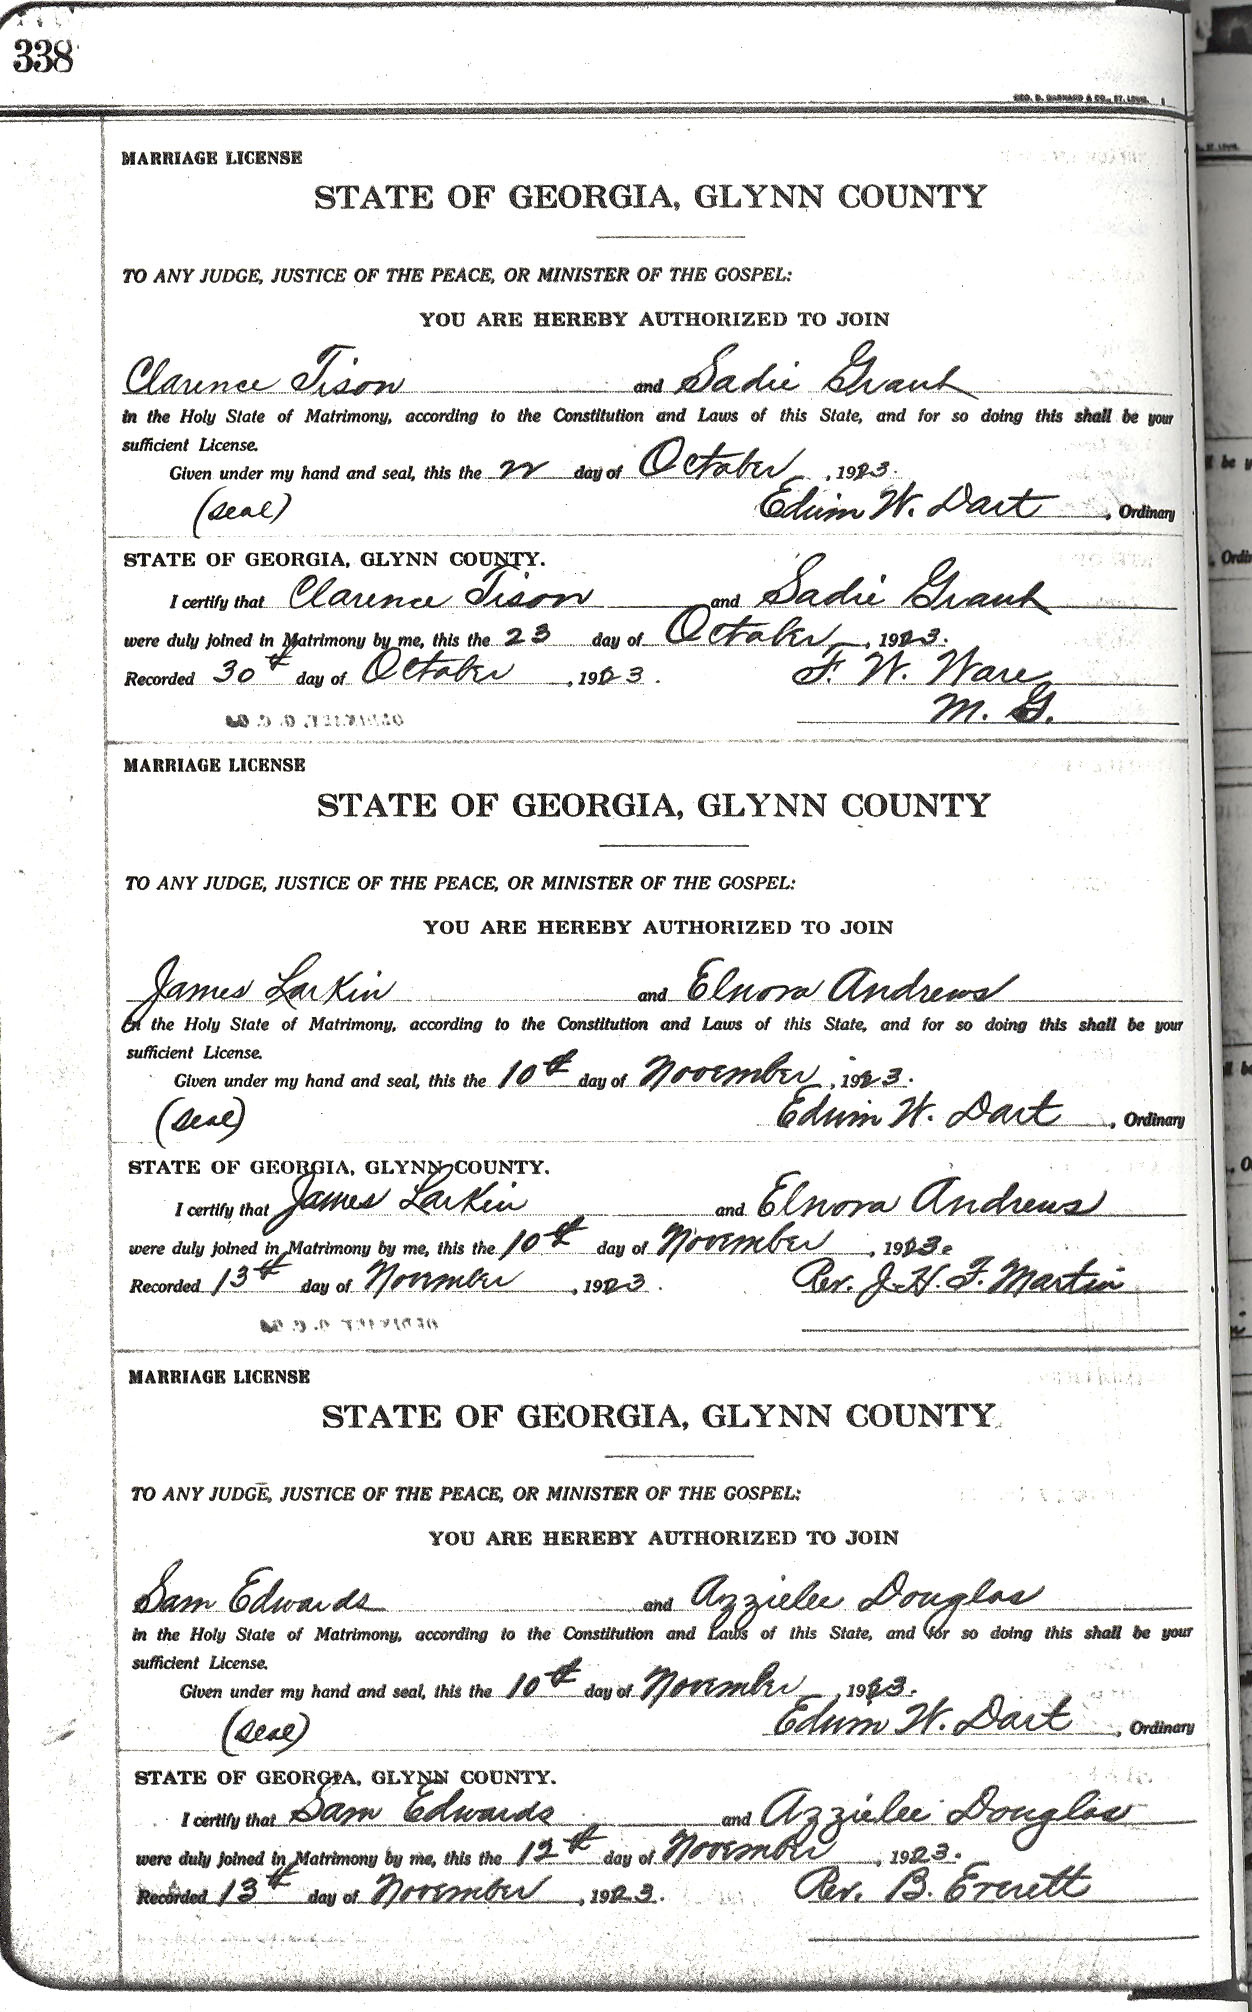 338
GEO. D. BARNARD & CO., ST. LOUIS.
MARRIAGE LICENSE
STATE OF GEORGIA, GLYNN COUNTY
TO ANY JUDGE, JUSTICE OF THE PEACE, OR MINISTER OF THE GOSPEL:
YOU ARE HEREBY AUTHORIZED TO JOIN
Clarence Tison and Sadie Grant
in the Holy State of Matrimony, according to the Constitution and Laws of this State, and for so doing this shall be your
sufficient License.
Given under my hand and seal, this the 22 day of October, 1923.
(seal) Edwin W. Dart, Ordinary
STATE OF GEORGIA, GLYNN COUNTY.
I certify that Clarence Tison and Sadie Grant
were duly joined in Matrimony by me, this the 23 day of October, 1923.
Recorded 30th day of October, 1923. F. W. Ware
M. G.
MARRIAGE LICENSE
STATE OF GEORGIA, GLYNN COUNTY
TO ANY JUDGE, JUSTICE OF THE PEACE, OR MINISTER OF THE GOSPEL:
YOU ARE HEREBY AUTHORIZED TO JOIN
James Larkin and Elnora Andrews
in the Holy State of Matrimony, according to the Constitution and Laws of this State, and for so doing this shall be your
sufficient License.
Given under my hand and seal, this the 10th day of November, 1923.
(seal) Edwin W. Dart, Ordinary
STATE OF GEORGIA, GLYNN COUNTY.
I certify that James Larkin and Elnora Andrews
were duly joined in Matrimony by me, this the 10th day of November, 1923.
Recorded 13th day of November, 1923. Rev. J. H. F. Martin
MARRIAGE LICENSE
STATE OF GEORGIA, GLYNN COUNTY
TO ANY JUDGE, JUSTICE OF THE PEACE, OR MINISTER OF THE GOSPEL:
YOU ARE HEREBY AUTHORIZED TO JOIN
Sam Edwards and Azzielee Douglas
in the Holy State of Matrimony, according to the Constitution and Laws of this State, and for so doing this shall be your
sufficient License.
Given under my hand and seal, this the 10th day of November, 1923.
(seal) Edwin W. Dart, Ordinary
STATE OF GEORGIA, GLYNN COUNTY.
I certify that Sam Edwards and Azzielee Douglas
were duly joined in Matrimony by me, this the 12th day of November, 1923.
Recorded 13th day of November, 1923. Rev. B. Everett